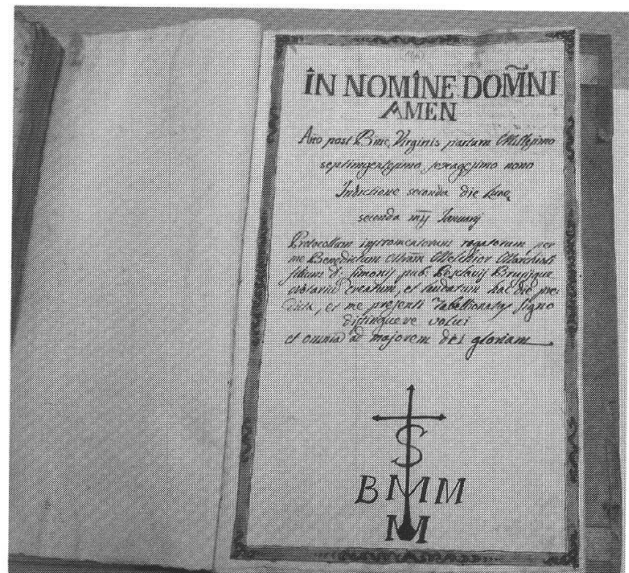 IN NOMINE DOM̃NI
AMEN
Año post Bme, Virginis partum Millesimo
septingentesimo, sexagesimo nono
Indictione secunda die Lune,
secunda Januarij
Protocollum instromentorum rogatorum per
me Benedictum Melchior
filium Simonis pub. Brusijque
notarium creatum, et laudatum hac die pre
dicta, et me presenti Tabellionatus signo
distinguere volui
et omnia ad majorem dei gloriam
S
BMM
M